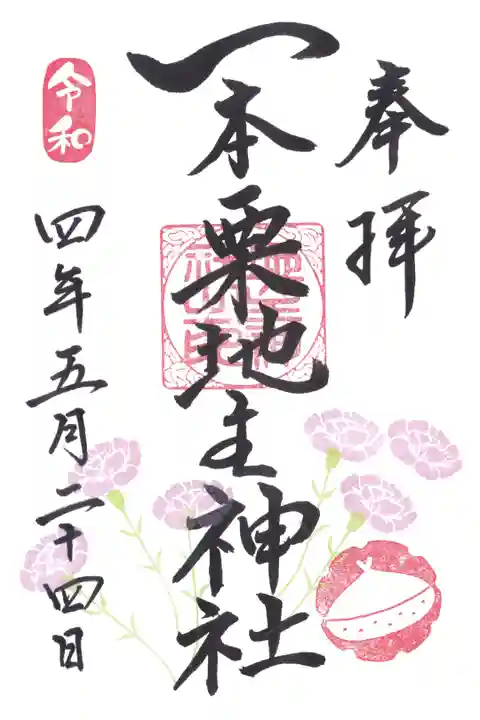 奉拝
一本栗地主神社
令和
四年五月二十四日